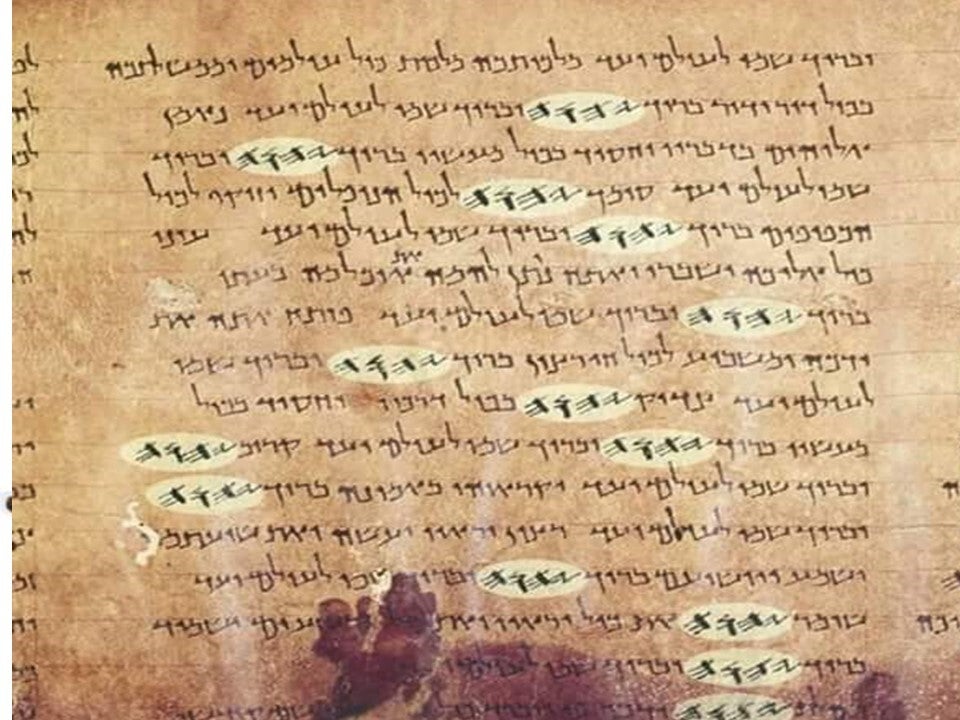 וברוך שמו לעולם ועד מלכותכה מלכות כול עולמים וממשלתכה
בכול דור ודור ברוך 𐤉𐤄𐤅𐤄 וברוך שמו לעולם ועד נאמן
אלוהים בדבריו וחסיד בכול מעשיו ברוך 𐤉𐤄𐤅𐤄 וברוך
שמו לעולם ועד סומך 𐤉𐤄𐤅𐤄 לכול הנופלים וזוקף לכול
הכפופים ברוך 𐤉𐤄𐤅𐤄 וברוך שמו לעולם ועד עיני
כול אליכה ישברו ואתה נתן להמה את אוכלמה בעתו
ברוך 𐤉𐤄𐤅𐤄 וברוך שמו לעולם ועד פותח אתה את
ידכה ומשביע לכול חי רצון ברוך 𐤉𐤄𐤅𐤄 וברוך שמו
לעולם ועד צדיק 𐤉𐤄𐤅𐤄 בכול דרכיו וחסיד בכול
מעשיו ברוך 𐤉𐤄𐤅𐤄 וברוך שמו לעולם ועד קרוב 𐤉𐤄𐤅𐤄
וברוך שמו לעולם ועד יקראוהו באמונה ברוך 𐤉𐤄𐤅𐤄
וברוך שמו לעולם ועד רצון יראיו יעשה ואת
ישמע ויושיעם ברוך 𐤉𐤄𐤅𐤄 וברוך שמו לעולם ועד
שומר 𐤉𐤄𐤅𐤄 את כול יראיו ואת ישמיד
ברוך 𐤉𐤄𐤅𐤄 וברוך שמו לעולם
𐤉𐤄𐤅𐤄